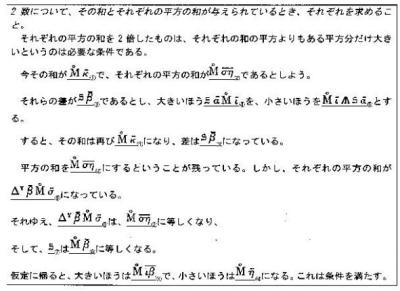 2 数について、その和とそれぞれの平方の和が与えられているとき、それぞれを求めること。
それぞれの平方の和を 2 倍したものは、それぞれの和の平方よりもある平方分だけ大きいというのは必要な条件である。
今その和が M̊ κ̄ で、それぞれの平方の和が M̊ σ̄η̄ であるとしよう。
それらの差が s β̄ であるとし、大きいほう s ᾱ M̊ ῑ を、小さいほうを M̊ ῑ ⋔ s ᾱ とする。
すると、その和は再び M̊ κ̄ になり、差は s β̄ になっている。
平方の和を M̊ σ̄η̄ にするということが残っている。しかし、それぞれの平方の和が
Δʸ β̄ M̊ σ̄ になっている。
それゆえ、Δʸ β̄ M̊ σ̄ は、M̊ σ̄η̄ に等しくなり、
そして、s は M̊ β̄ に等しくなる。
仮定に帰ると、大きいほうは M̊ ῑβ̄ で、小さいほうは M̊ η̄ になる。これは条件を満たす。